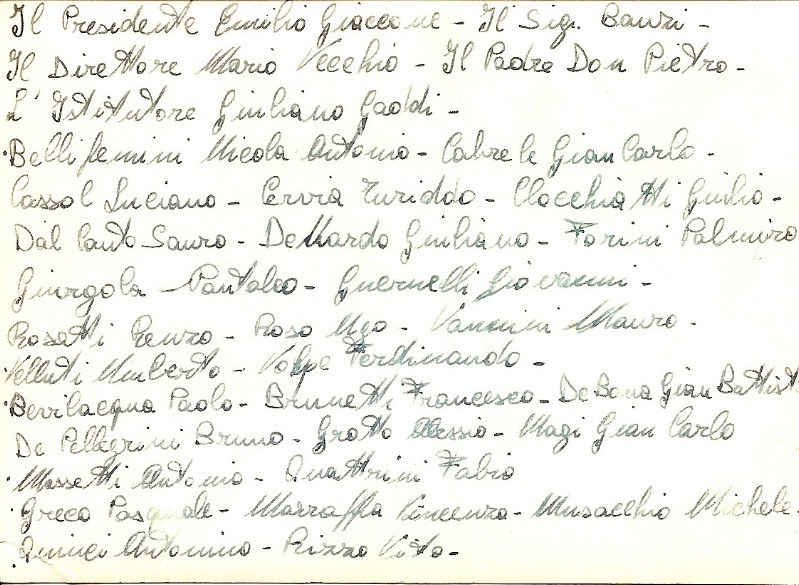 Il Presidente Emilio Giaccone - Il Sig. Bauzi -
Il Direttore Mario Vecchio - Il Padre Don Pietro -
L'Istitutore Giuliano Gaddi -
Bellifemini Nicola Antonio - Cabrele Gian Carlo -
Cassol Luciano - Cervia Turiddo - Clocchiatti Giulio -
Dal Canto Sauro - De Nardo Giuliano - Forini Palmiro
Giurgola Pantaleo - Guernelli Giovanni -
Rosatti Renzo - Roso Ugo - Vannini Mauro -
Velluti Umberto - Volpe Ferdinando -
Bevilacqua Paolo - Brunetti Francesco - De Bona Gian Battist
De Pellegrini Bruno - Grotto Alessio - Magi Gian Carlo
Massetti Antonio - Quattrini Fabio
Greco Pasquale - Marraffa Vincenzo - Musacchio Michele
Quinci Antonino - Rizzo Vito -